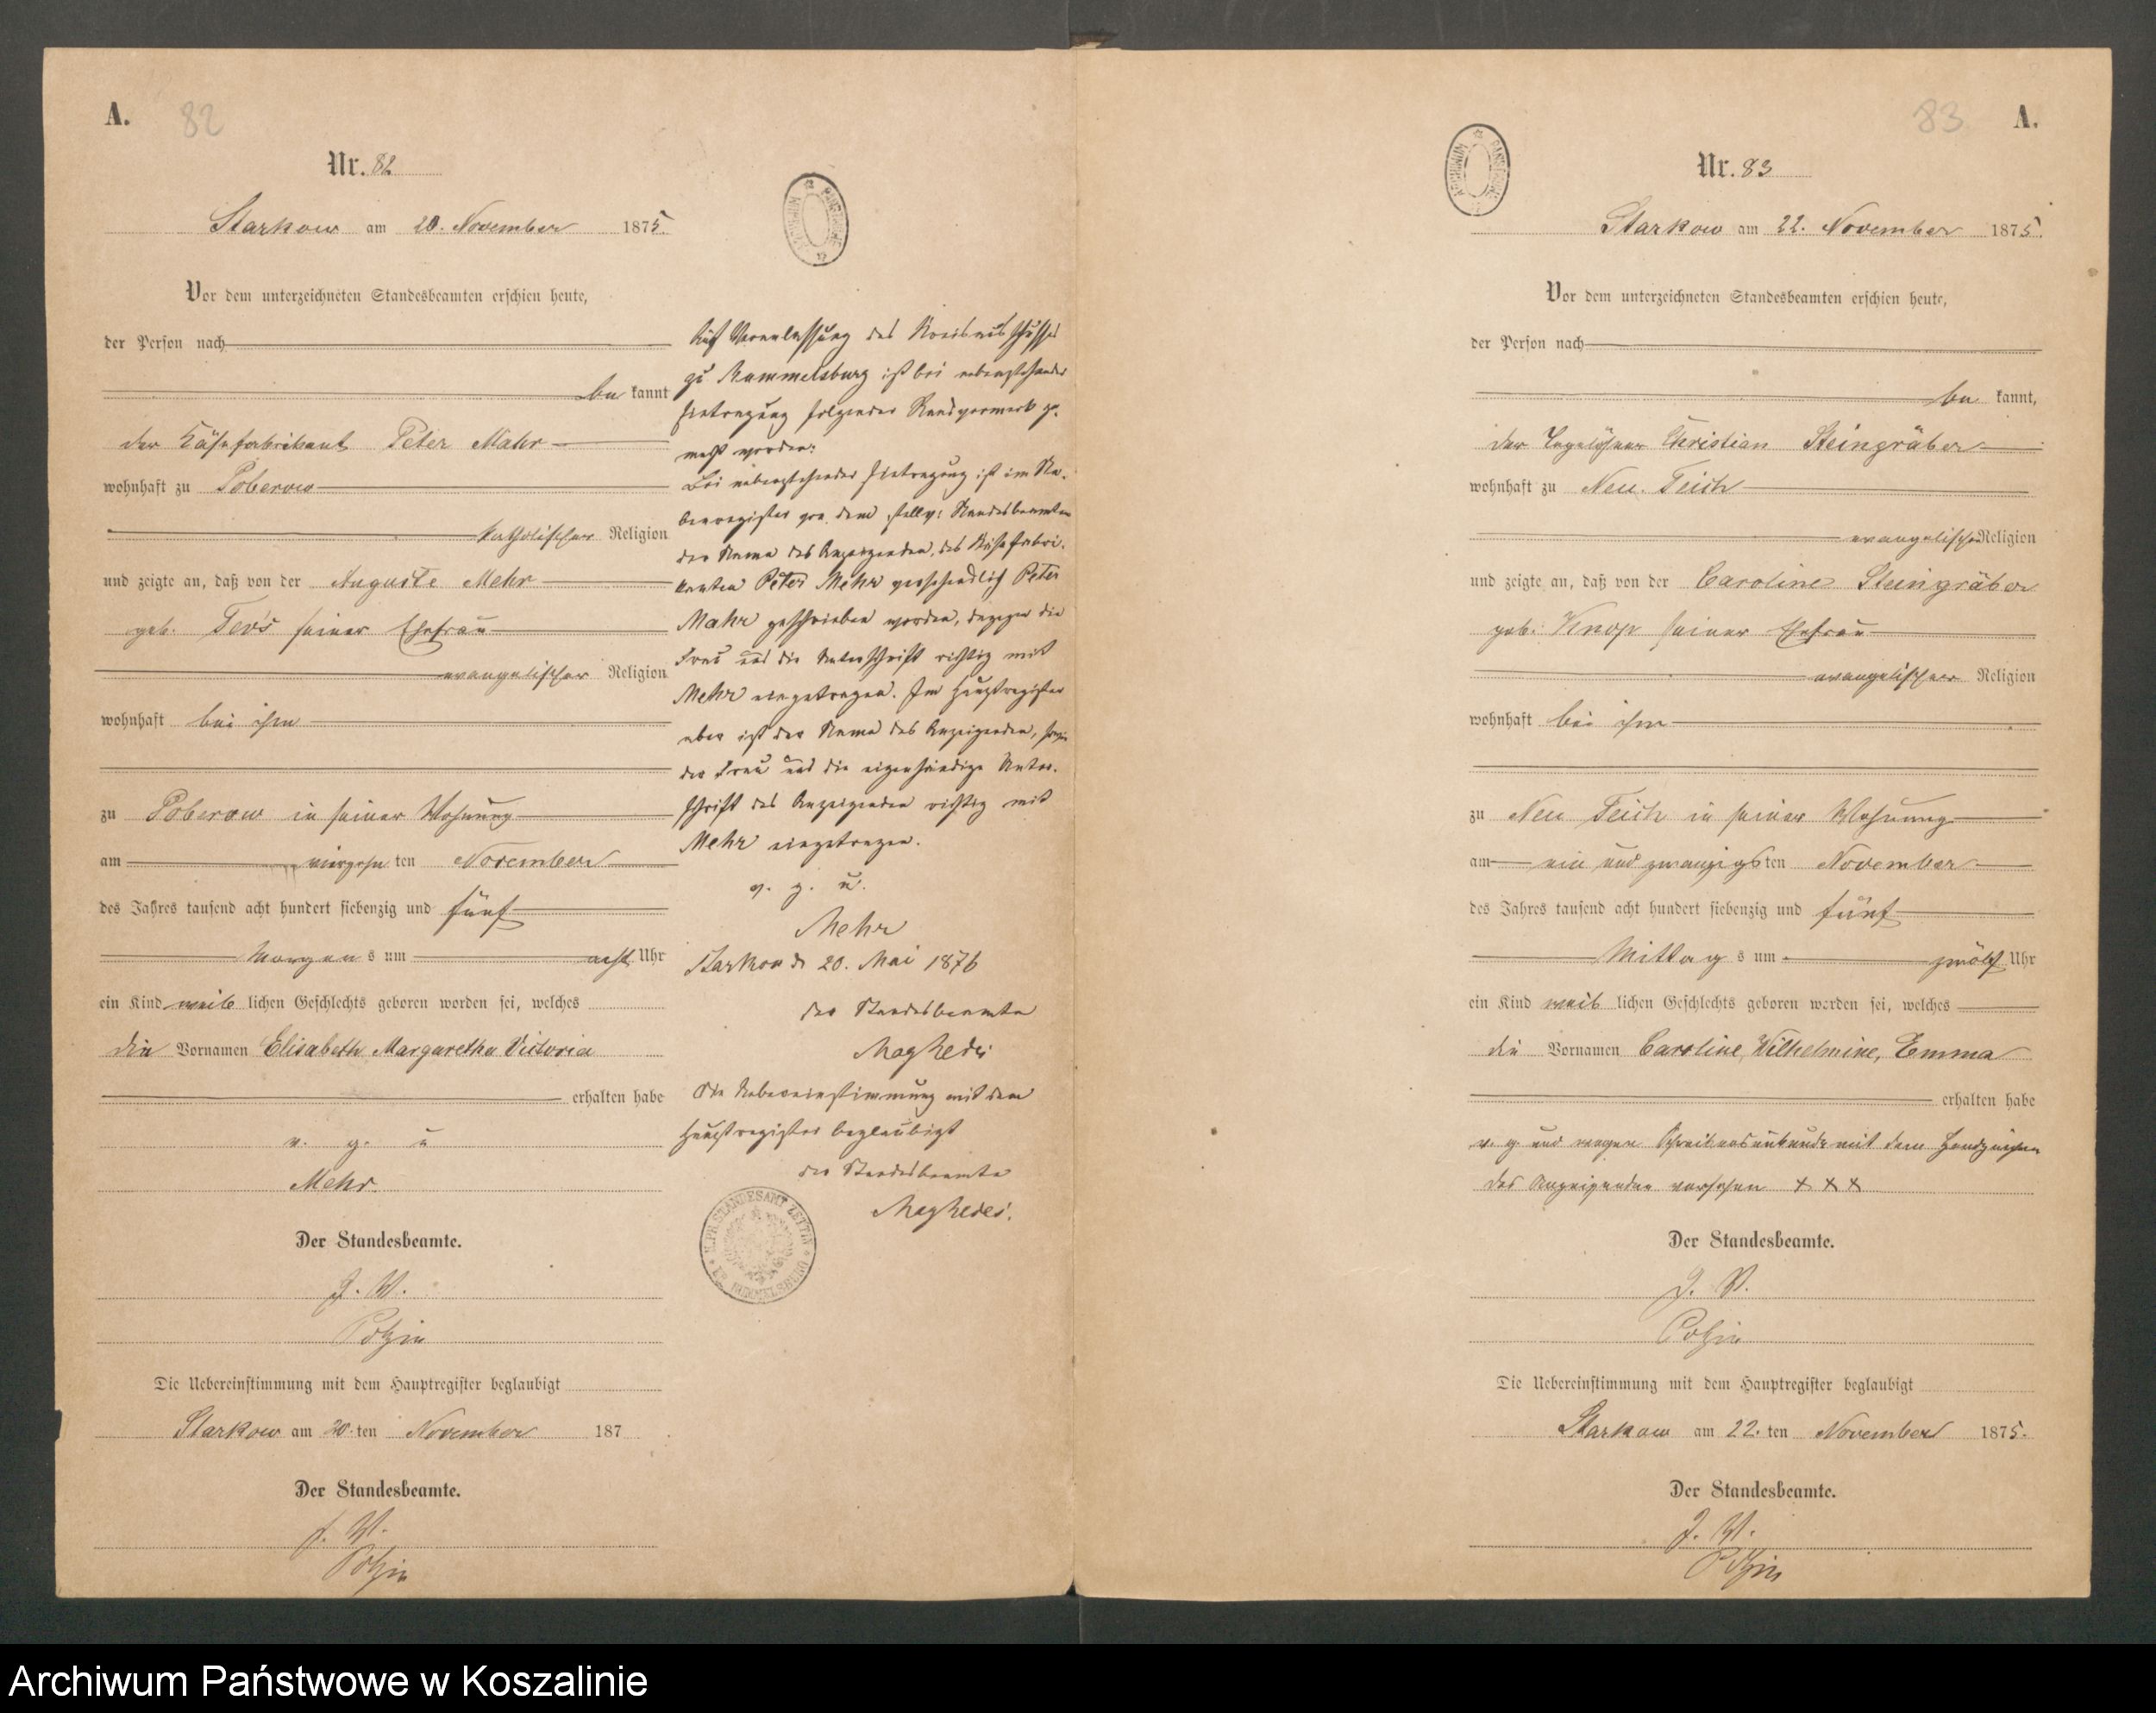 A. 82
Nr. 82
Starkow am 20. November 1875.
Vor dem unterzeichneten Standesbeamten erschien heute,
der Person nach
be kannt
der Käsefabrikant Peter Mahr
wohnhaft zu Poberow
katholischer Religion
und zeigte an, daß von der Auguste Mehr
geb. seiner Ehefrau
evangelischer Religion
wohnhaft bei ihm
zu Poberow in seiner Wohnung
am vierzehn ten November
des Jahres tausend acht hundert siebenzig und fünf
Morgen s um acht Uhr
ein Kind weib lichen Geschlechts geboren worden sei, welches
die Vornamen Elisabeth Margaretha Victoria
erhalten habe
v. g. u
Mehr
Der Standesbeamte.
J. V.
Polzin
Die Uebereinstimmung mit dem Hauptregister beglaubigt
Starkow am 20. ten November 187
Der Standesbeamte.
J. V.
Polzin
Auf Veranlassung des Kreisausschusses
zu Rummelsburg ist bei nebenstehender
Eintragung folgender Randvermerk ge-
macht worden:
Bei nebenstehender Eintragung ist im Ne-
benregister von dem stellv: Standesbeamten
der Name des Anzeigenden, des Käsefabri-
kanten Peter Mehr versehendlich Peter
Mahr geschrieben worden, dagegen die
Frau und die Unterschrift richtig mit
Mehr eingetragen. Im Hauptregister
aber ist der Name des Anzeigenden, sowie
der Frau und die eigenhändige Unter-
schrift des Anzeigenden richtig mit
Mehr eingetragen.
v. g. u.
Mehr
Starkow d. 20. Mai 1876
der Standesbeamte
Die Uebereinstimmung mit dem
Hauptregister beglaubigt
der Standesbeamte
K. PR. STANDESAMT ZETTIN
KR. RUMMELSBURG
ARCHIWUM PAŃSTWOWE
83 A.
ARCHIWUM PAŃSTWOWE
Nr. 83
Starkow am 22. November 1875.
Vor dem unterzeichneten Standesbeamten erschien heute,
der Person nach
be kannt,
der Tagelöhner Christian Steingräber
wohnhaft zu Neu Teich
evangelischer Religion
und zeigte an, daß von der Caroline Steingräber
geb. Knop seiner Ehefrau
evangelischer Religion
wohnhaft bei ihm
zu Neu Teich in seiner Wohnung
am ein und zwanzigsten November
des Jahres tausend acht hundert siebenzig und fünf
Mittag s um zwölf Uhr
ein Kind weib lichen Geschlechts geboren worden sei, welches
die Vornamen Caroline, Wilhelmine, Emma
erhalten habe
v. g. und wegen Schreibensunkunde mit dem Handzeichen
des Anzeigenden versehen + + +
Der Standesbeamte.
J. V.
Polzin
Die Uebereinstimmung mit dem Hauptregister beglaubigt
Starkow am 22. ten November 1875.
Der Standesbeamte.
J. V.
Polzin
Archiwum Państwowe w Koszalinie